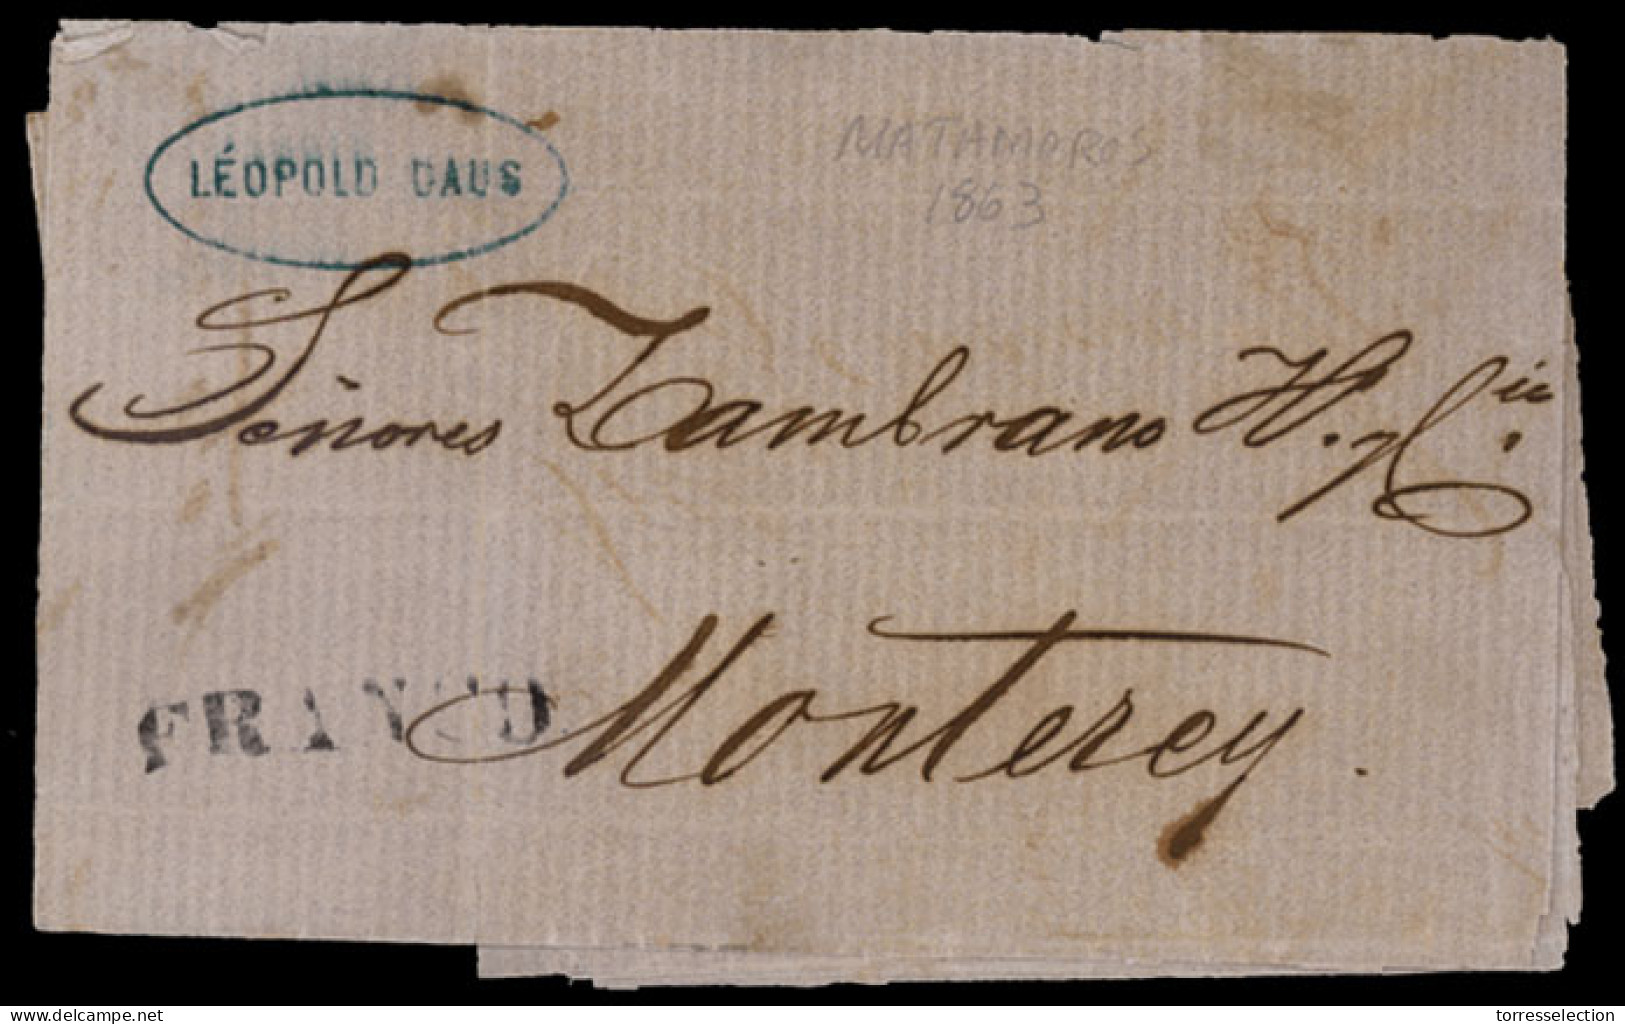 LÉOPOLD DAUS
MATAMOROS
1863
Señores Zambrano H. y Cia.
FRANCO.
Monterey.
delcampe.net
torresselection